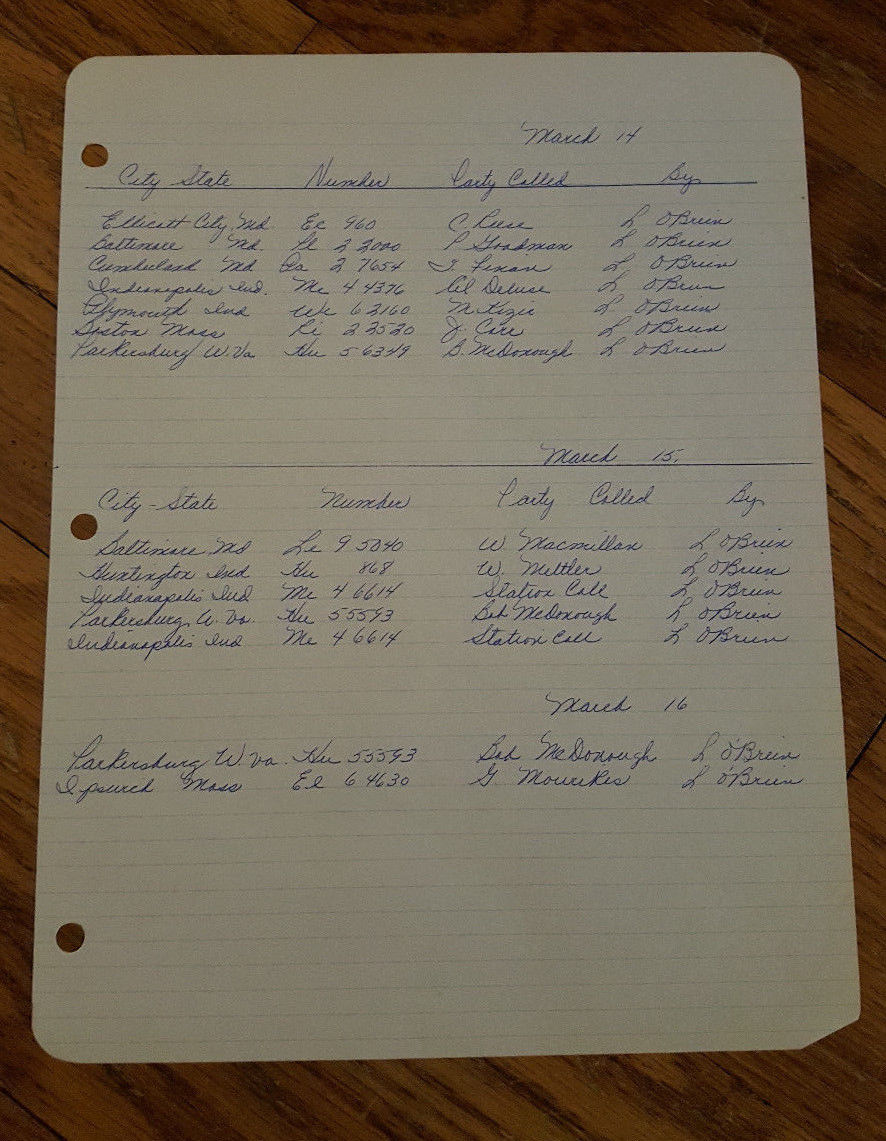 March 14
City State Number Party Called By
Ellicott City, Md. El 960 C. Reese L O'Brien
Baltimore Md Pl 2 2000 P Goodman L O'Brien
Cumberland Md Pa 2 7654 T. Finan L O'Brien
Indianapolis Ind. Me 4 4376 L O'Brien
Plymouth Ind We 6 2160 M. L O'Brien
Boston Mass Ri 2 3520 J. L O'Brien
Parkersburg W.Va Hu 5 6349 B. McDonough L O'Brien
March 15.
City-State Number Party Called By
Baltimore Md Le 9 5040 W Macmillan L O'Brien
Huntington Ind Hu 868 W. Mettler L O'Brien
Indianapolis Ind Me 4 6614 Station Call L O'Brien
Parkersburg W. Va. Hu 55593 Bob McDonough L O'Brien
Indianapolis Ind Me 4 6614 Station Call L O'Brien
March 16
Parkersburg W. Va. Hu 55593 Bob McDonough L O'Brien
Mass El 6 4630 G. Mourikes L O'Brien